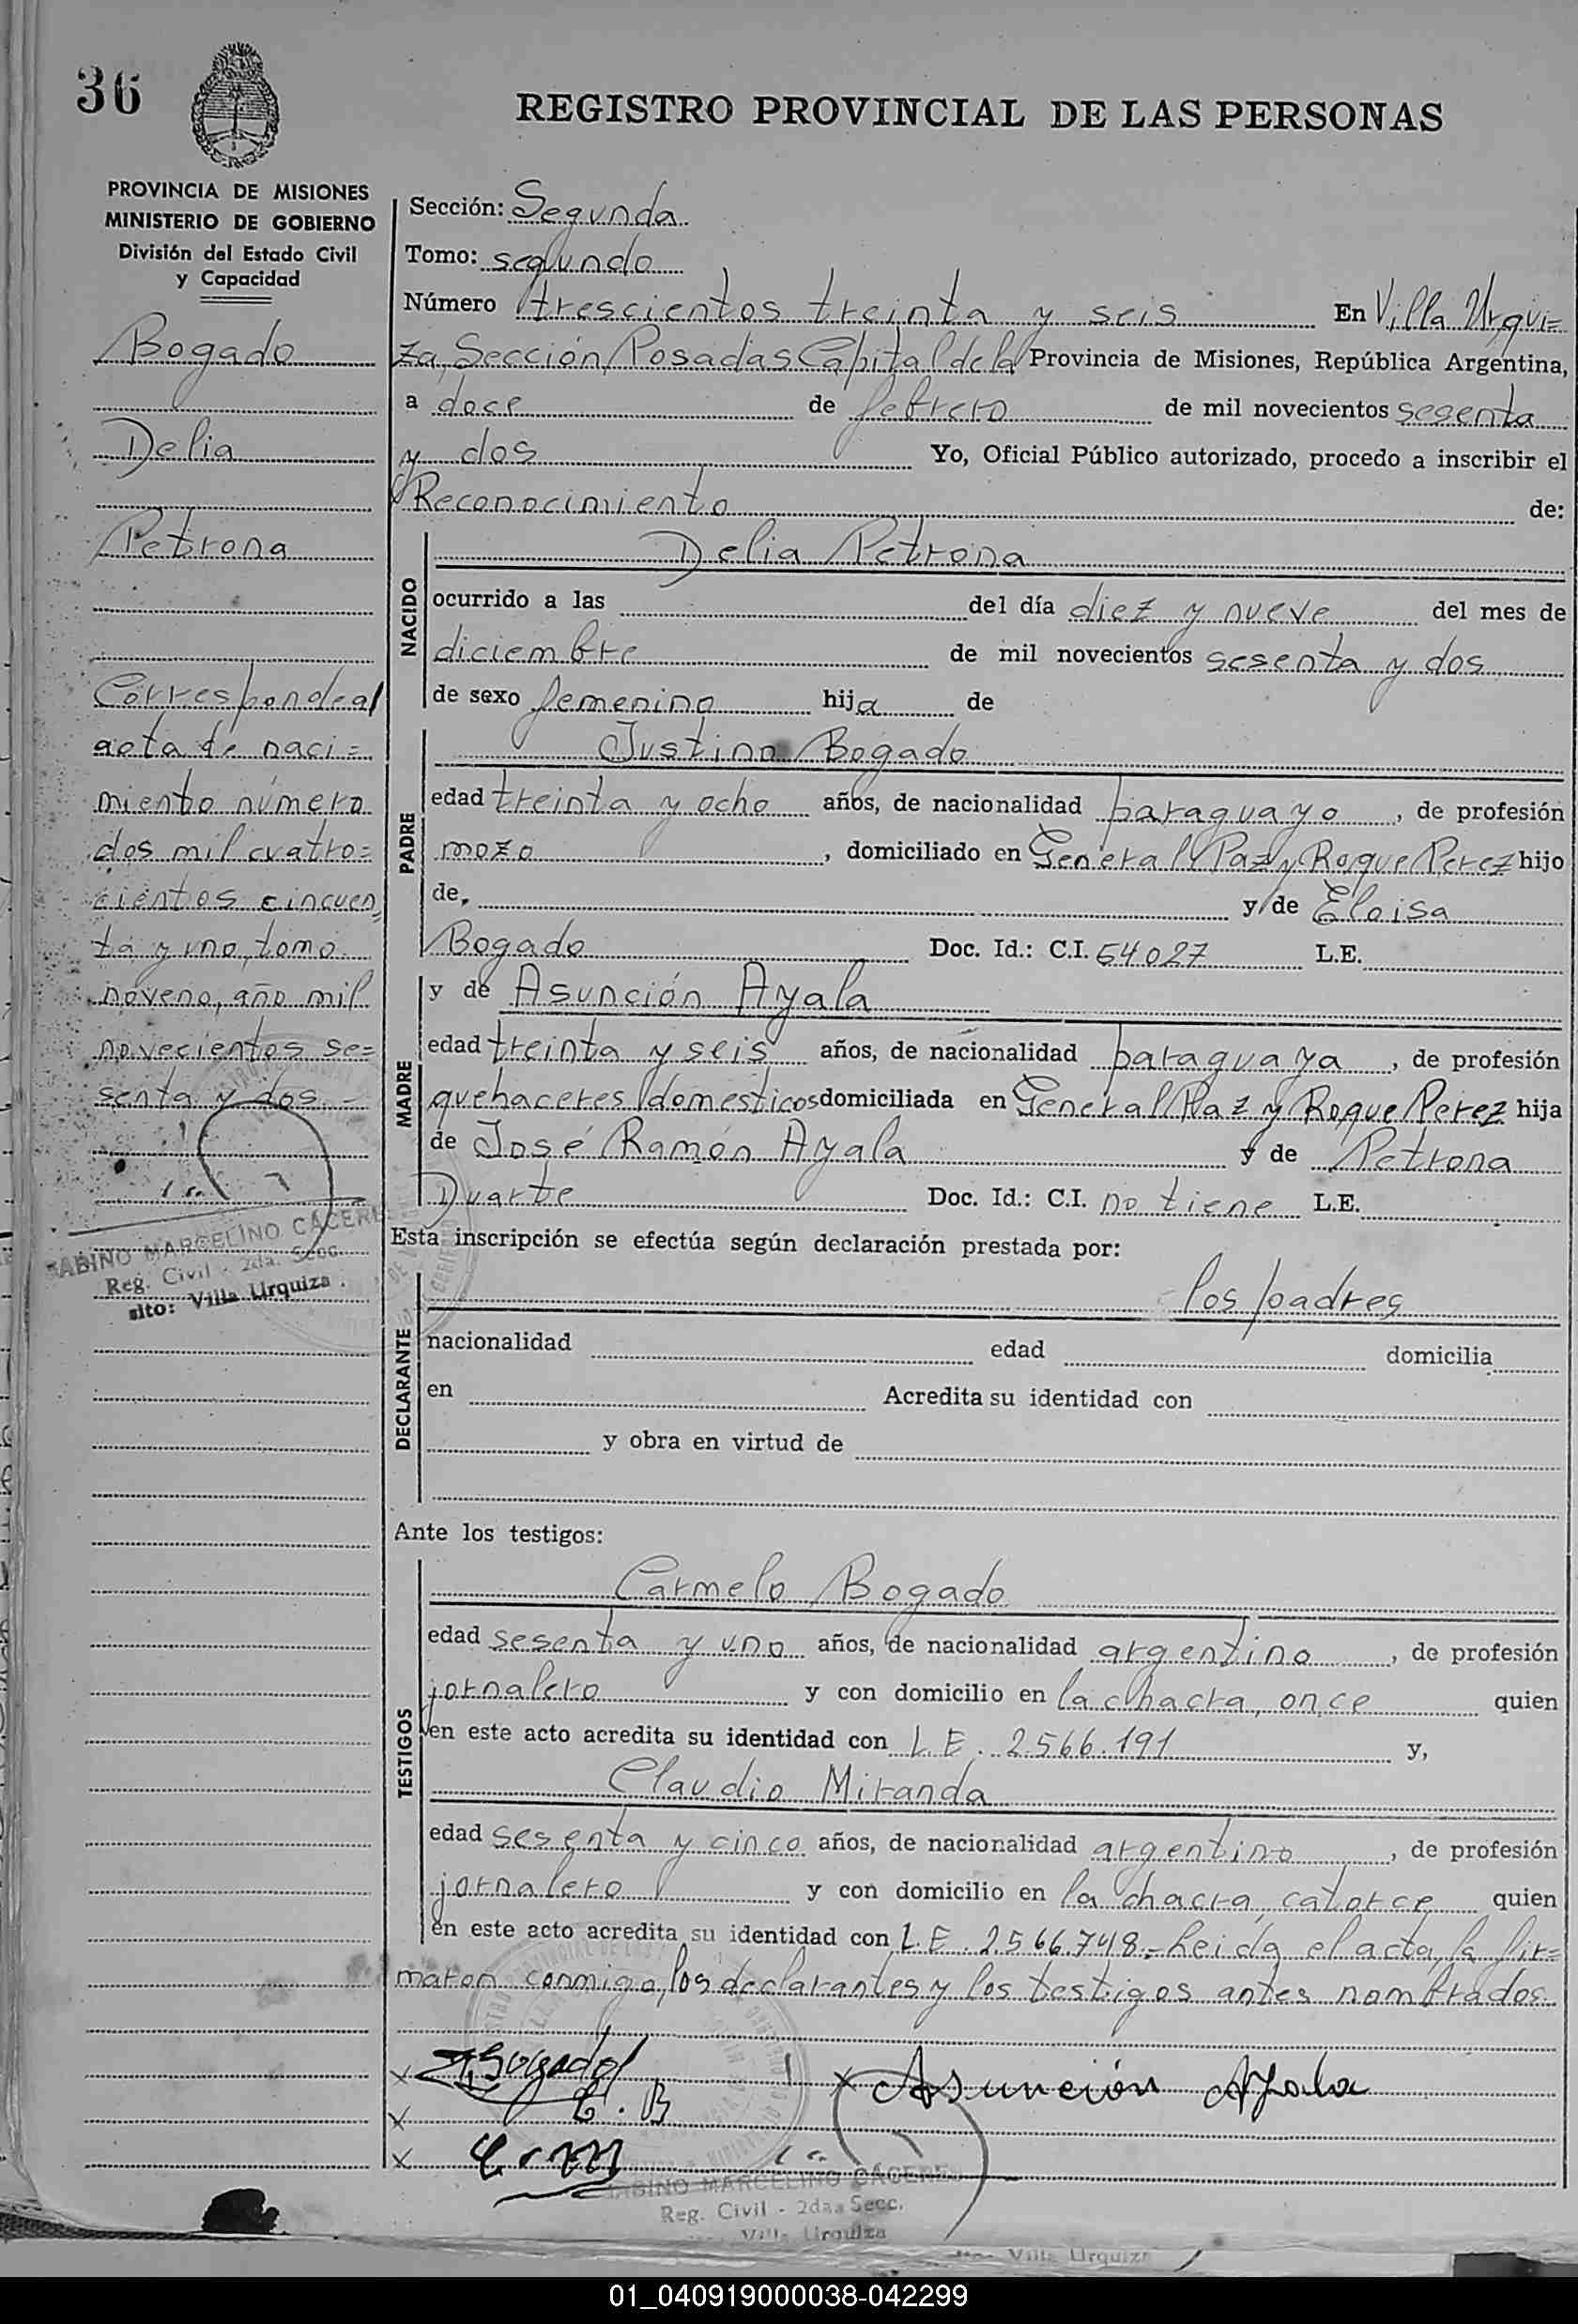 36
REGISTRO PROVINCIAL DE LAS PERSONAS
PROVINCIA DE MISIONES
MINISTERIO DE GOBIERNO
División del Estado Civil
y Capacidad
Bogado
Delia
Petrona
Corresponde al
acta de naci=
miento número
dos mil cuatro=
cientos cincuen=
ta y uno, tomo
noveno, año mil
novecientos se=
senta y dos.-
SABINO MARCELINO CACERES
Reg. Civil - 2da. Secc.
sito: Villa Urquiza.
Sección: Segunda
Tomo: segundo
Número trescientos treinta y seis En Villa Urqui=
za, Sección Posadas Capital de la Provincia de Misiones, República Argentina,
a doce de febrero de mil novecientos sesenta
y dos Yo, Oficial Público autorizado, procedo a inscribir el
Reconocimiento de:
Delia Petrona
NACIDO
ocurrido a las del día diez y nueve del mes de
diciembre de mil novecientos sesenta y dos
de sexo femenino hija de
Justino Bogado
PADRE
edad treinta y ocho años, de nacionalidad paraguayo, de profesión
mozo, domiciliado en General Paz y Roque Perez hijo
de, y de Eloisa
Bogado Doc. Id.: C.I. 54027 L.E.
y de Asunción Ayala
MADRE
edad treinta y seis años, de nacionalidad paraguaya, de profesión
quehaceres domesticos domiciliada en General Paz y Roque Perez hija
de José Ramón Ayala y de Petrona
Duarte Doc. Id.: C.I. no tiene L.E.
Esta inscripción se efectúa según declaración prestada por:
los padres
DECLARANTE
nacionalidad edad domicilia
en Acredita su identidad con
y obra en virtud de
Ante los testigos:
Carmelo Bogado
TESTIGOS
edad sesenta y uno años, de nacionalidad argentino, de profesión
jornalero y con domicilio en la chacra once quien
en este acto acredita su identidad con L.E. 2.566.191 y,
Claudio Miranda
edad sesenta y cinco años, de nacionalidad argentino, de profesión
jornalero y con domicilio en la chacra catorce quien
en este acto acredita su identidad con L.E. 2.566.748.- Leida el acta, la fir=
maron conmigo, los declarantes y los testigos antes nombrados.
x Bogado x Asunción Ayala
x C. B
x C. M
SABINO MARCELINO CACERES
Reg. Civil - 2da. Secc.
Villa Urquiza
Villa Urquiza
01_040919000038-042299